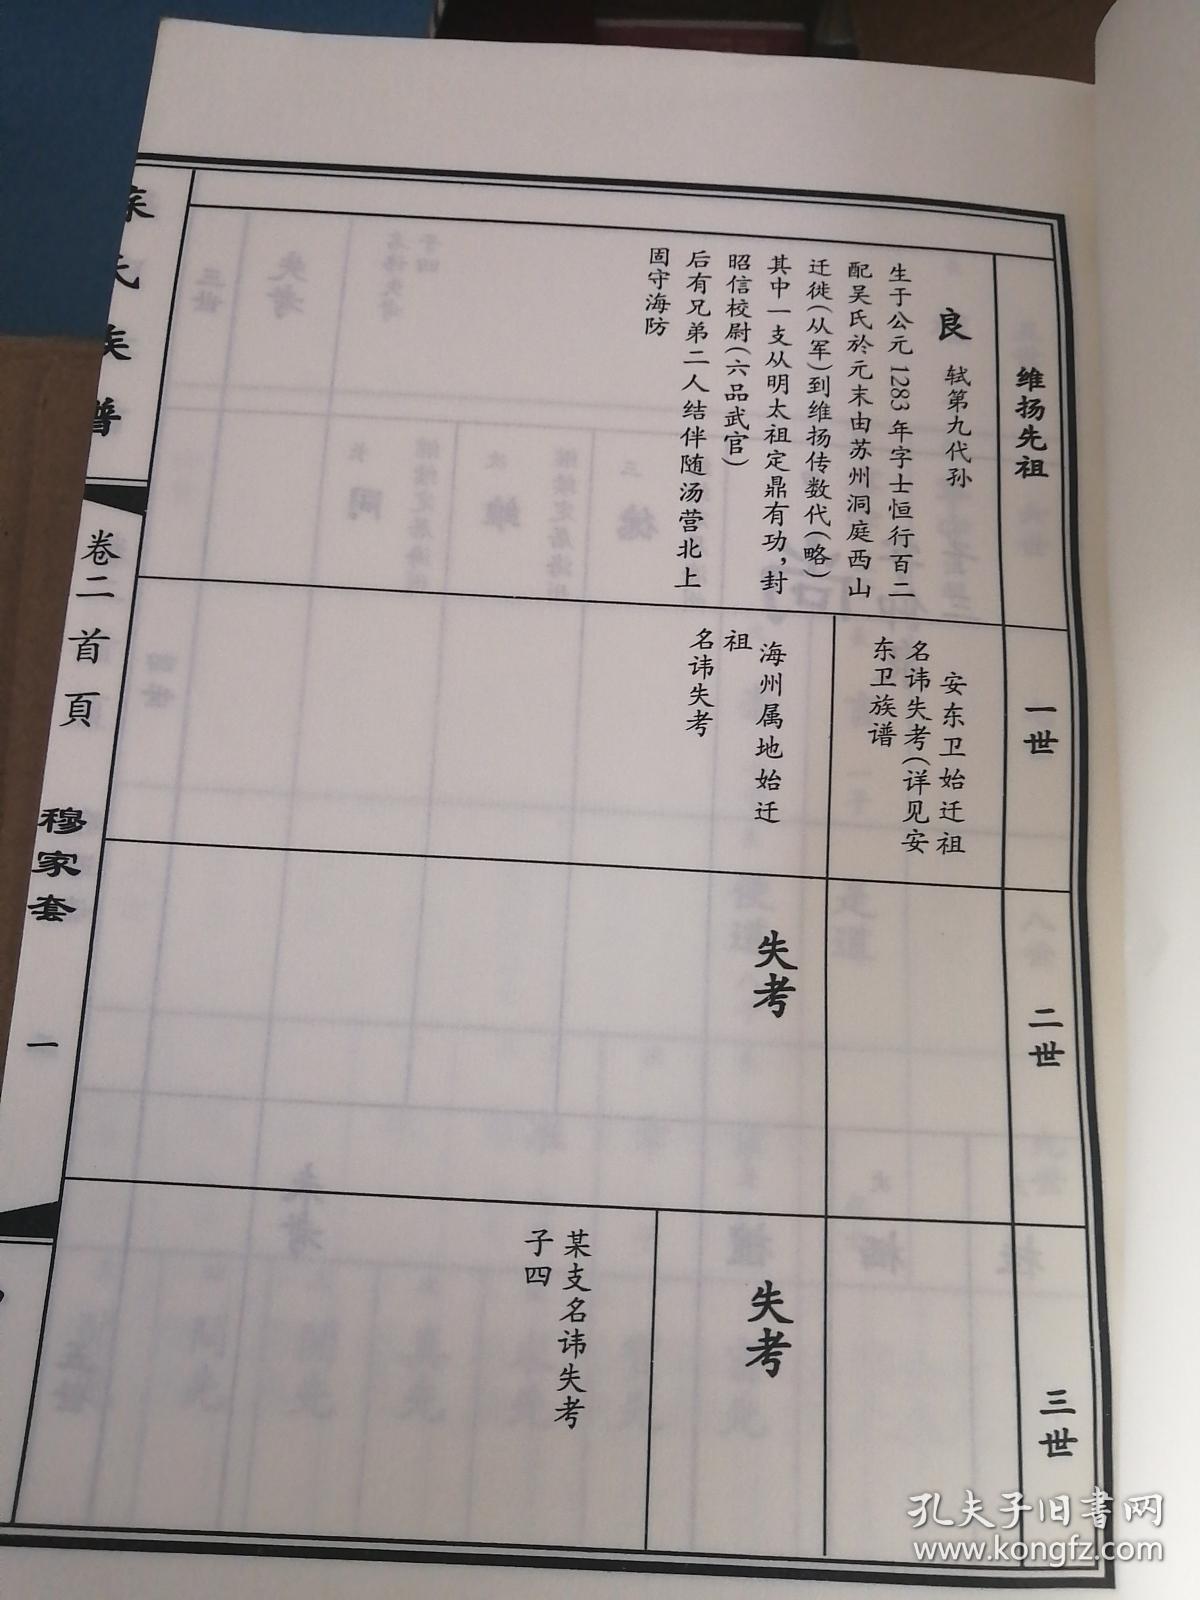 维扬先祖
良 轼第九代孙
生于公元1283年字士恒行百二
配吴氏於元末由苏州洞庭西山
迁徙（从军）到维扬传数代（略）
其中一支从明太祖定鼎有功，封
昭信校尉（六品武官）
后有兄弟二人结伴随汤营北上
固守海防
一世
安东卫始迁祖
名讳失考（详见安
东卫族谱
海州属地始迁
祖
名讳失考
二世
失考
三世
失考
某支名讳失考
子四
氏族谱
卷二首頁
穆家套
一
孔夫子旧书网
www.kongfz.com